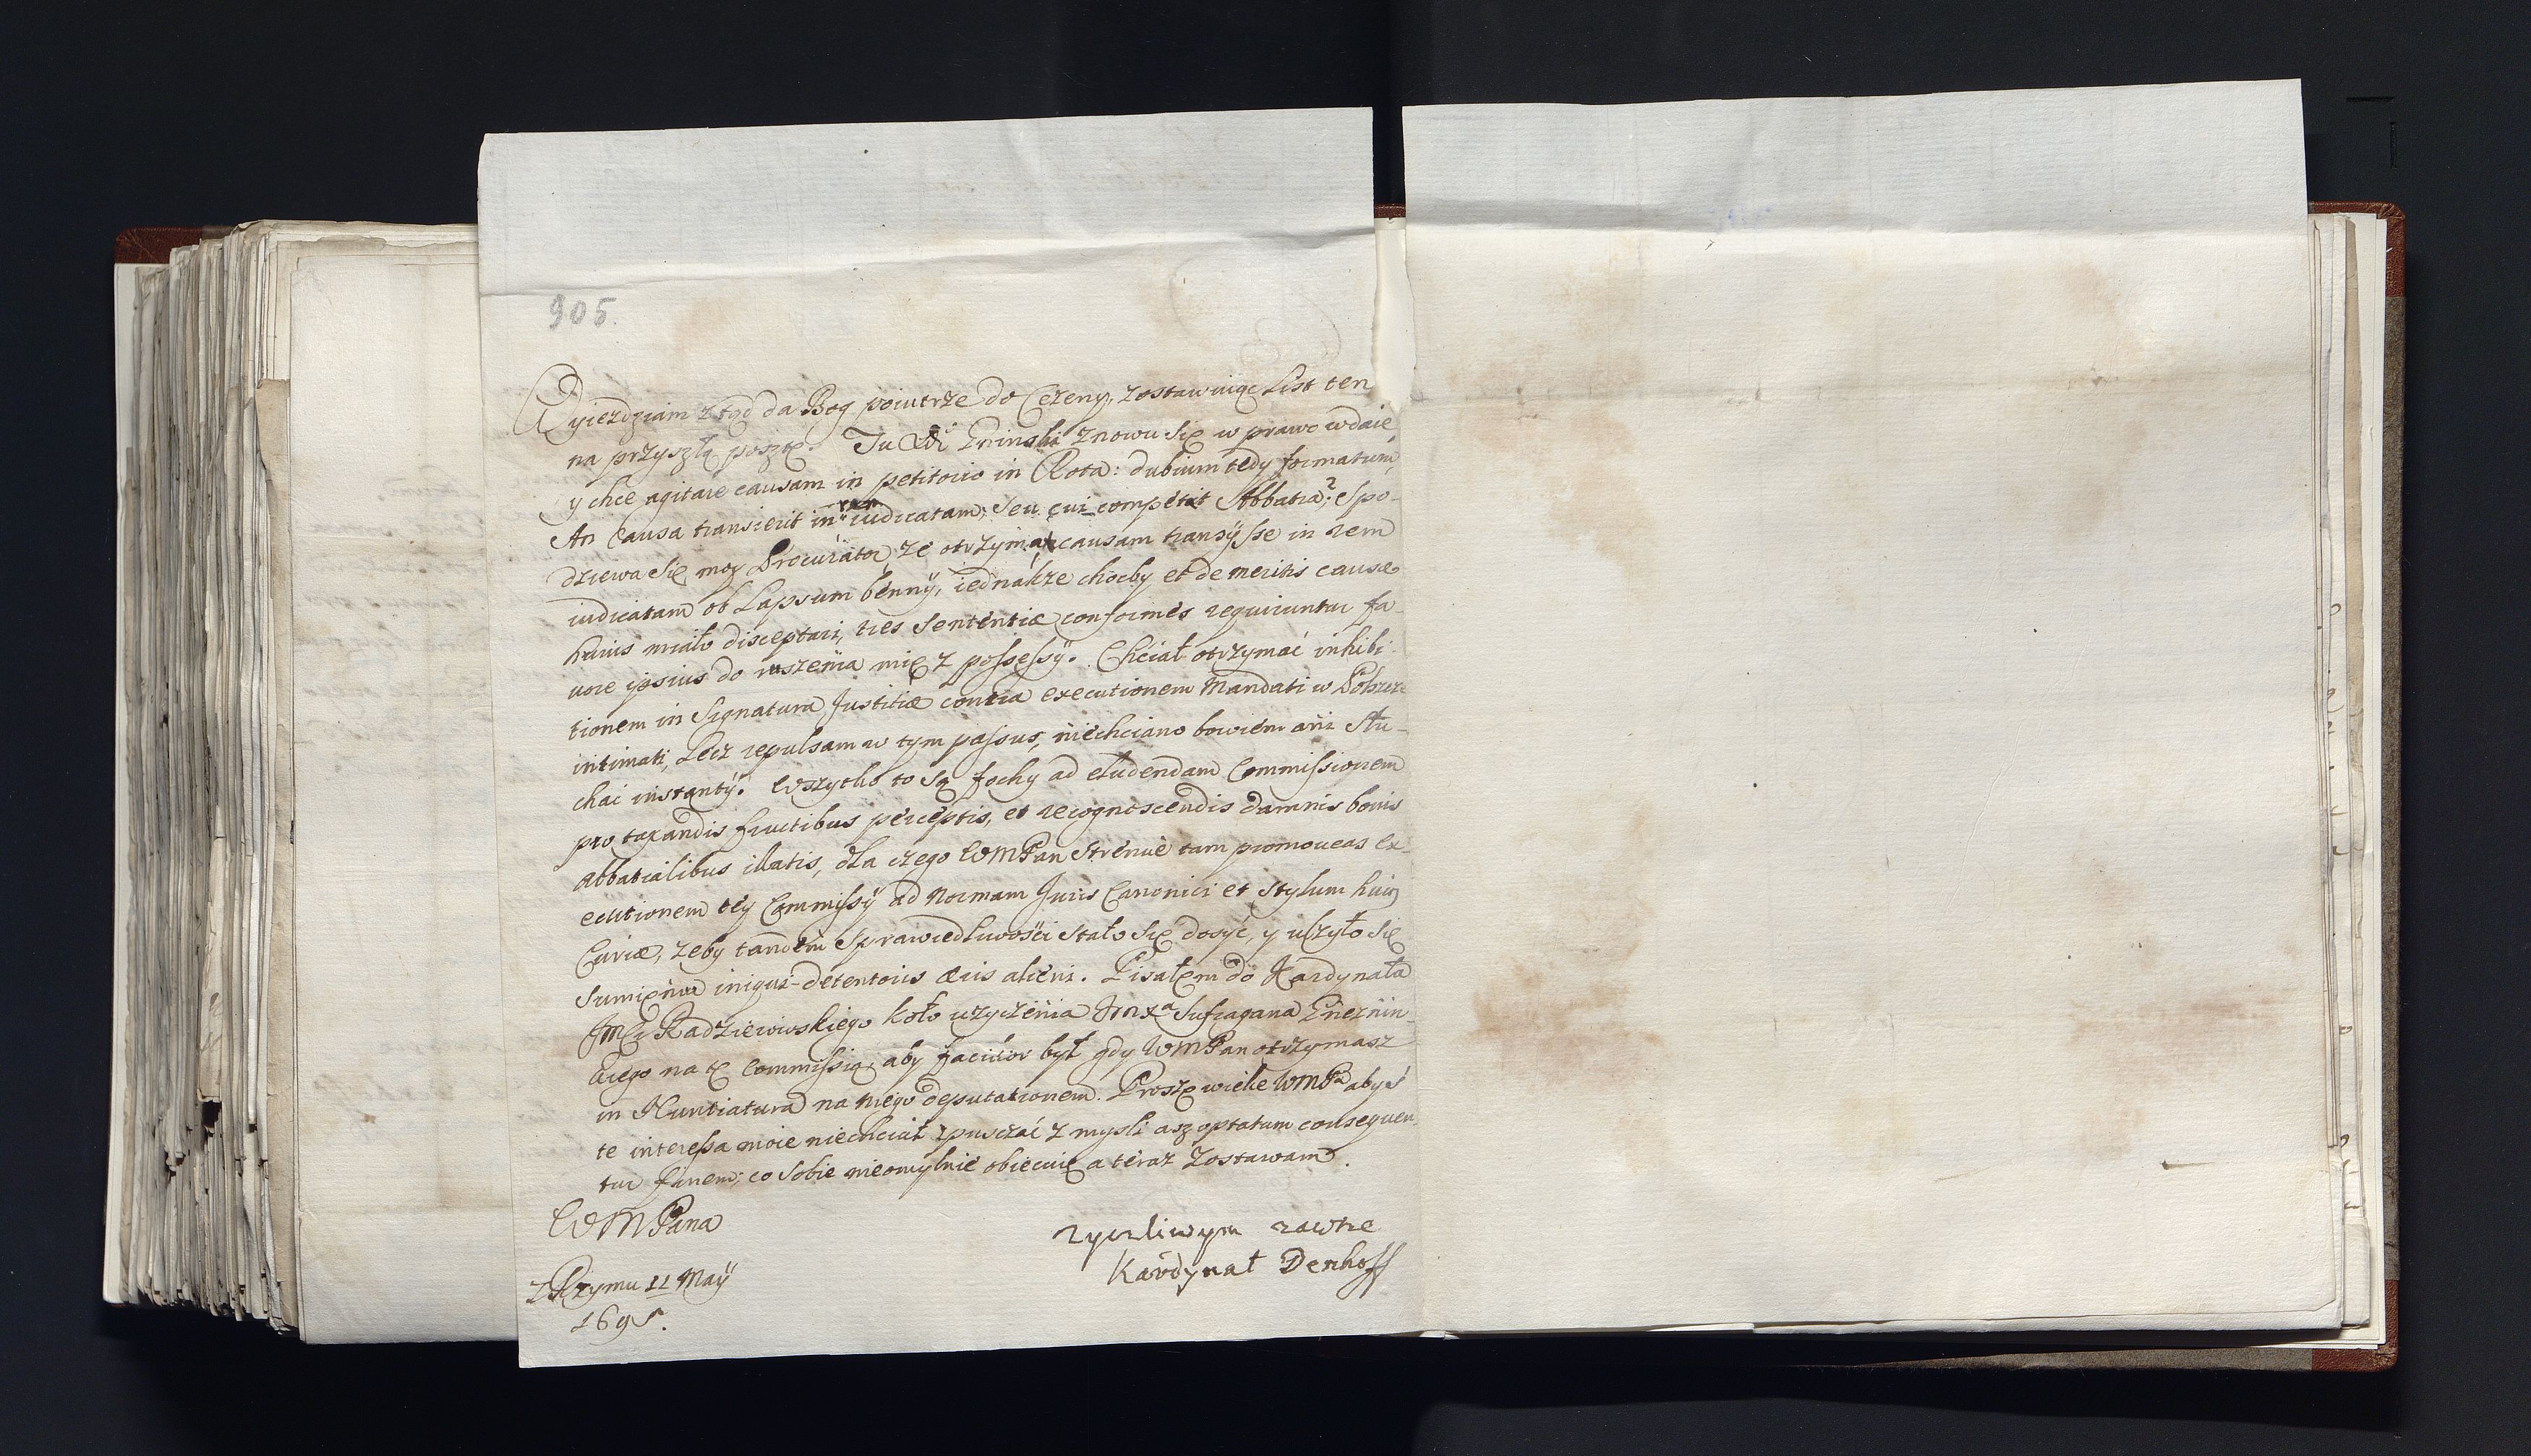 905.
Wyiezdziam ztąd da Bog poiutrze do Cezeny, zostawuiąc List ten
na przyszłą posztę. Tu Gninski znowu się w prawo wdaie
y chce agitare causam in petitorio in Rota: dubium tedy formatum,
An Causa transierit in rem iudicatam, seu cui competat Abbatia? spo-
dziewa się moy Procurator, ze otrzyma causam transÿsse in rem
iudicatam ob Lapsum bennÿ, iednakze choćby et de meritis causæ
huius miało disceptari, tres sententiæ conformes requiruntur fa-
uore ipsius do ruszenia mię z possessÿ. Chciał otrzymać inhibi-
tionem in Signatura Justitiæ contra executionem Mandati w Polszcze
intimati, Lecz repulsam w tym passus, niechciano bowiem ani słu-
chać instantÿ. Wszytko to są fochy ad eludendam Commissionem
pro taxandis fructibus perceptis, et recognoscendis damnis bonis
Abbatialibus illatis, dla czego WMPan strenuè tam promoueas ex-
ecutionem tey Commissÿ ad Normam Juris Canonici et stylum huius
Curiæ, zeby tandem sprawiedliwości stało się dosyć, y ulzyło się
sumięnia iniqui detentoris æris alieni. Pisałem do Kardynała
JMCi Radzieiowskiego koło uzyczenia Jmxa Sufragana Gniezniń-
skiego na tę Commissią, aby facilior był gdy WMPan otrzymasz
in Nuntiatura na niego deputationem. Proszę wielce WMPa abyś
te interessa moie niechciał spusczać z mysli asz optatum consequen-
tur finem; co sobie nieomylnie obiecuię a teraz Zostawam.
WMPana
zyczliwym zawsze
Kardynał Denhoff
z Rzymu 11 Maÿ
1695.